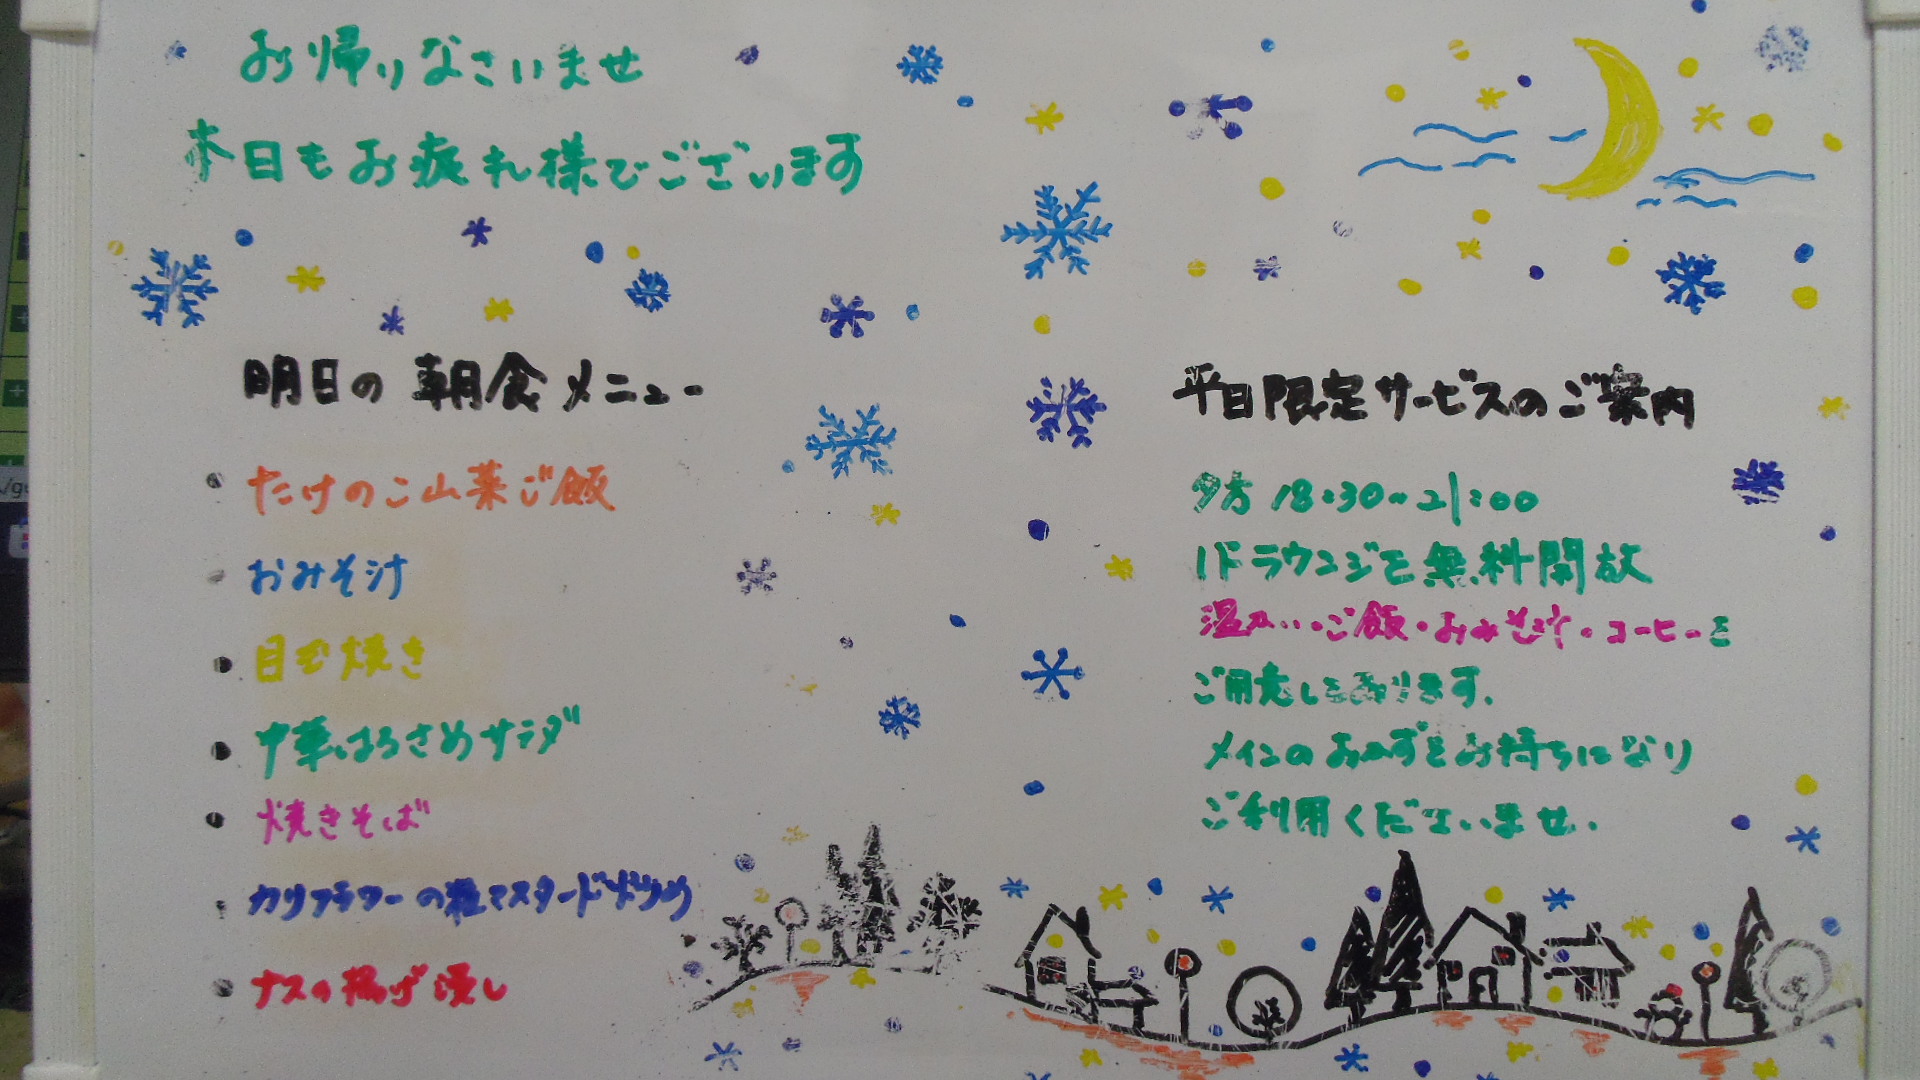 お帰りなさいませ
本日もお疲れ様でございます
明日の朝食メニュー
・たけのこ山菜ご飯
・おみそ汁
・目玉焼き
・中華はるさめサラダ
・焼きそば
・カリフラワーの粒マスタード炒め
・ナスの揚げ浸し
平日限定サービスのご案内
夕方 18:30~21:00
1Fラウンジを無料開放
温かいご飯・おみそ汁・コーヒーを
ご用意しております。
メインのおかずをお持ちになり
ご利用くださいませ.